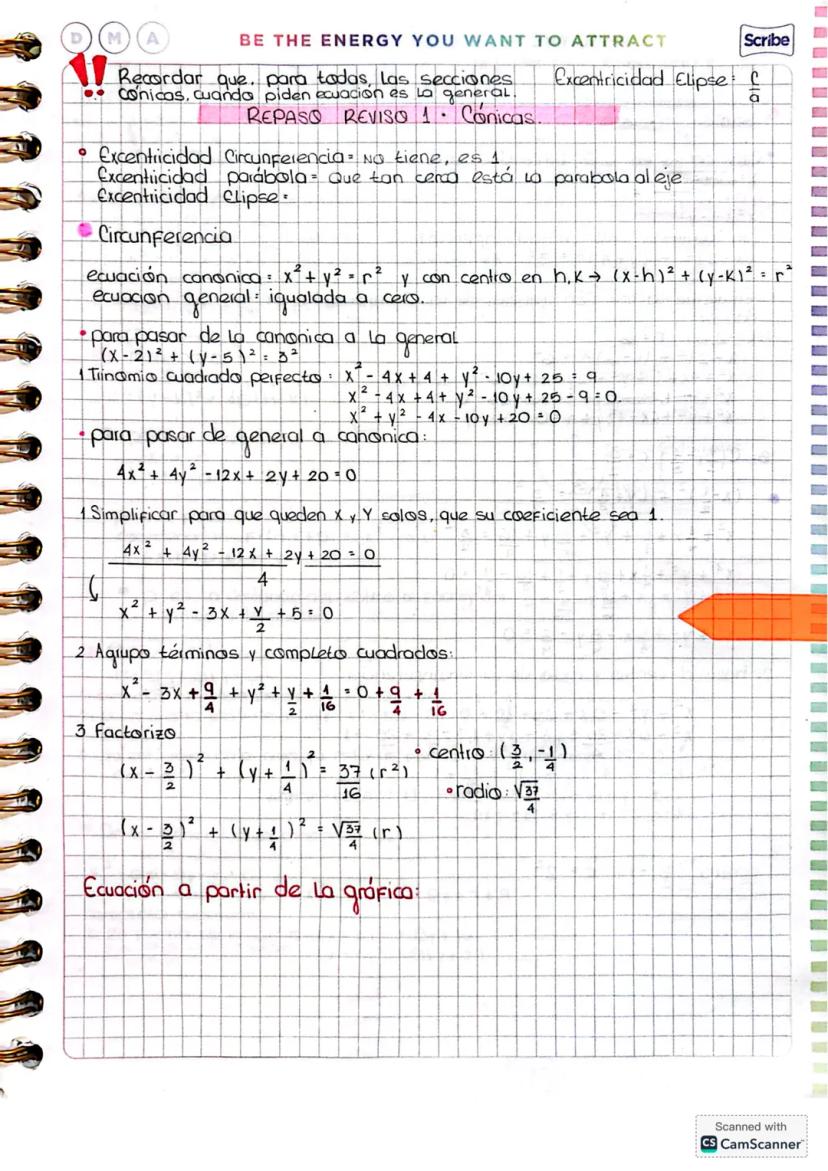 D M A BE THE ENERGY YOU WANT TO ATTRACT Scribe
!! Recordar que. para todas, las secciones Excentricidad Elipse: c/a
cónicas, cuando piden ecuación es la general.
REPASO REVISO 1 · Cónicas.
• Excentricidad Circunferencia = NO tiene, es 1
Excentricidad parábola = Que tan cerca está la parabola al eje
Excentricidad Elipse =
• Circunferencia
ecuación canonica: x² + y² = r² y con centro en h,K → (x-h)² + (y-K)² = r²
ecuacion general: igualada a cero.
• para pasar de la canonica a la general
(x-2)² + (y-5)² = 3²
1 Trinomio cuadrado perfecto: x² - 4x + 4 + y² - 10y + 25 = 9
x² - 4x + 4 + y² - 10y + 25 - 9 = 0.
x² + y² - 4x - 10y + 20 = 0
• para pasar de general a canonica:
4x² + 4y² - 12x + 2y + 20 = 0
1 Simplificar para que queden x y Y solos, que su coeficiente sea 1.
4x² + 4y² - 12x + 2y + 20 = 0
4
x² + y² - 3x + y/2 + 5 = 0
2 Agrupo términos y completo cuadrados:
x² - 3x + 9/4 + y² + y/2 + 1/16 = 0 + 9/4 + 1/16
3 Factorizo
(x - 3/2)² + (y + 1/4)² = 37/16 (r²)
• centro: (3/2, -1/4)
• radio: √37/4
(x - 3/2)² + (y + 1/4)² = √37/4 (r)
Ecuación a partir de la gráfica:
Scanned with
CS CamScanner